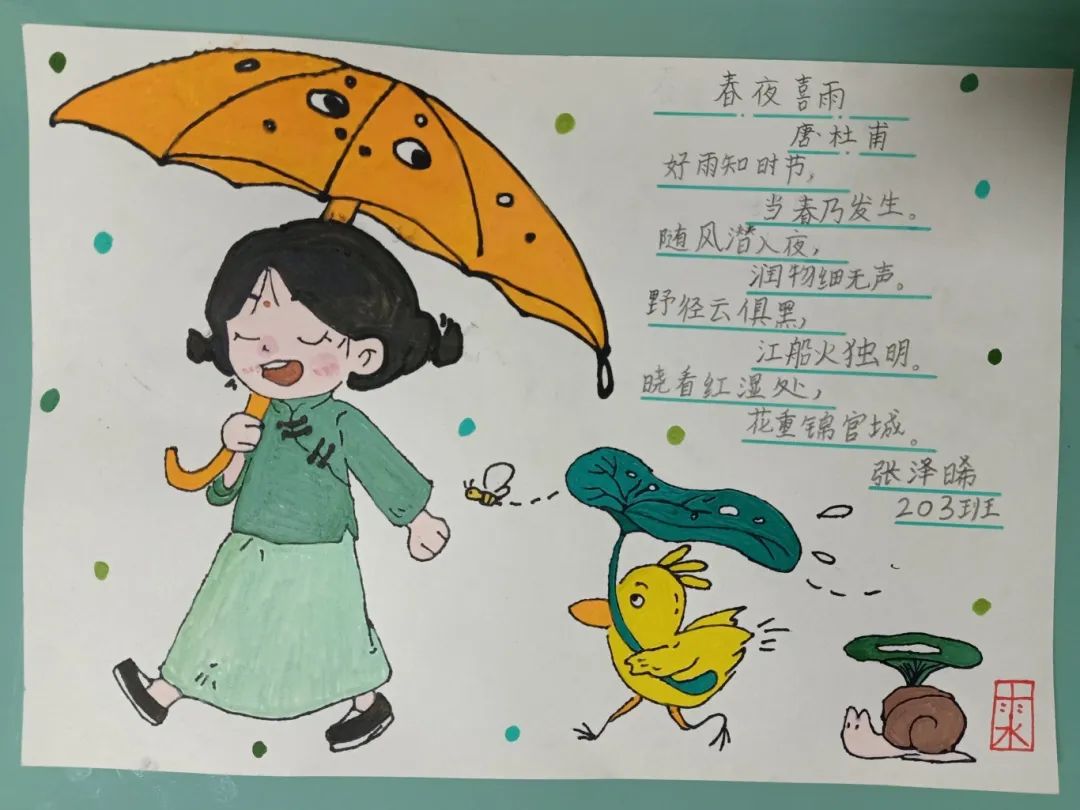 春夜喜雨
唐·杜甫
好雨知时节，
当春乃发生。
随风潜入夜，
润物细无声。
野径云俱黑，
江船火独明。
晓看红湿处，
花重锦官城。
张泽晞
203班
雨水